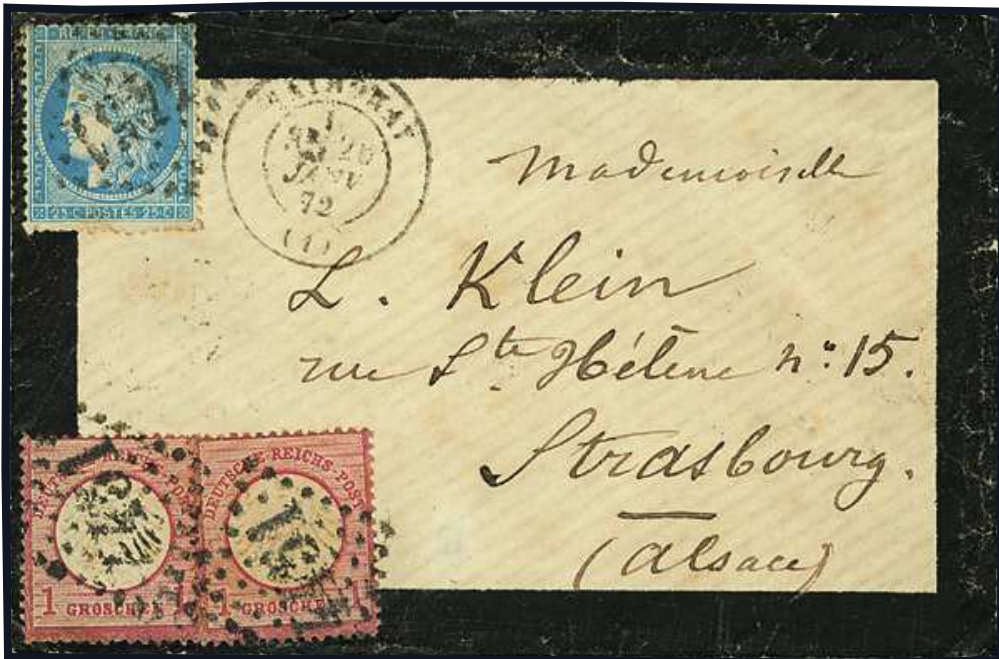 25·C·POSTES·25·C
JANV
72
(1)
Mademoiselle
L. Klein
rue Ste Hélène n: 15.
Strasbourg.
(Alsace)
DEUTSCHE REICHS-POST
1 GROSCHEN 1
DEUTSCHE REICHS-POST
1 GROSCHEN 1